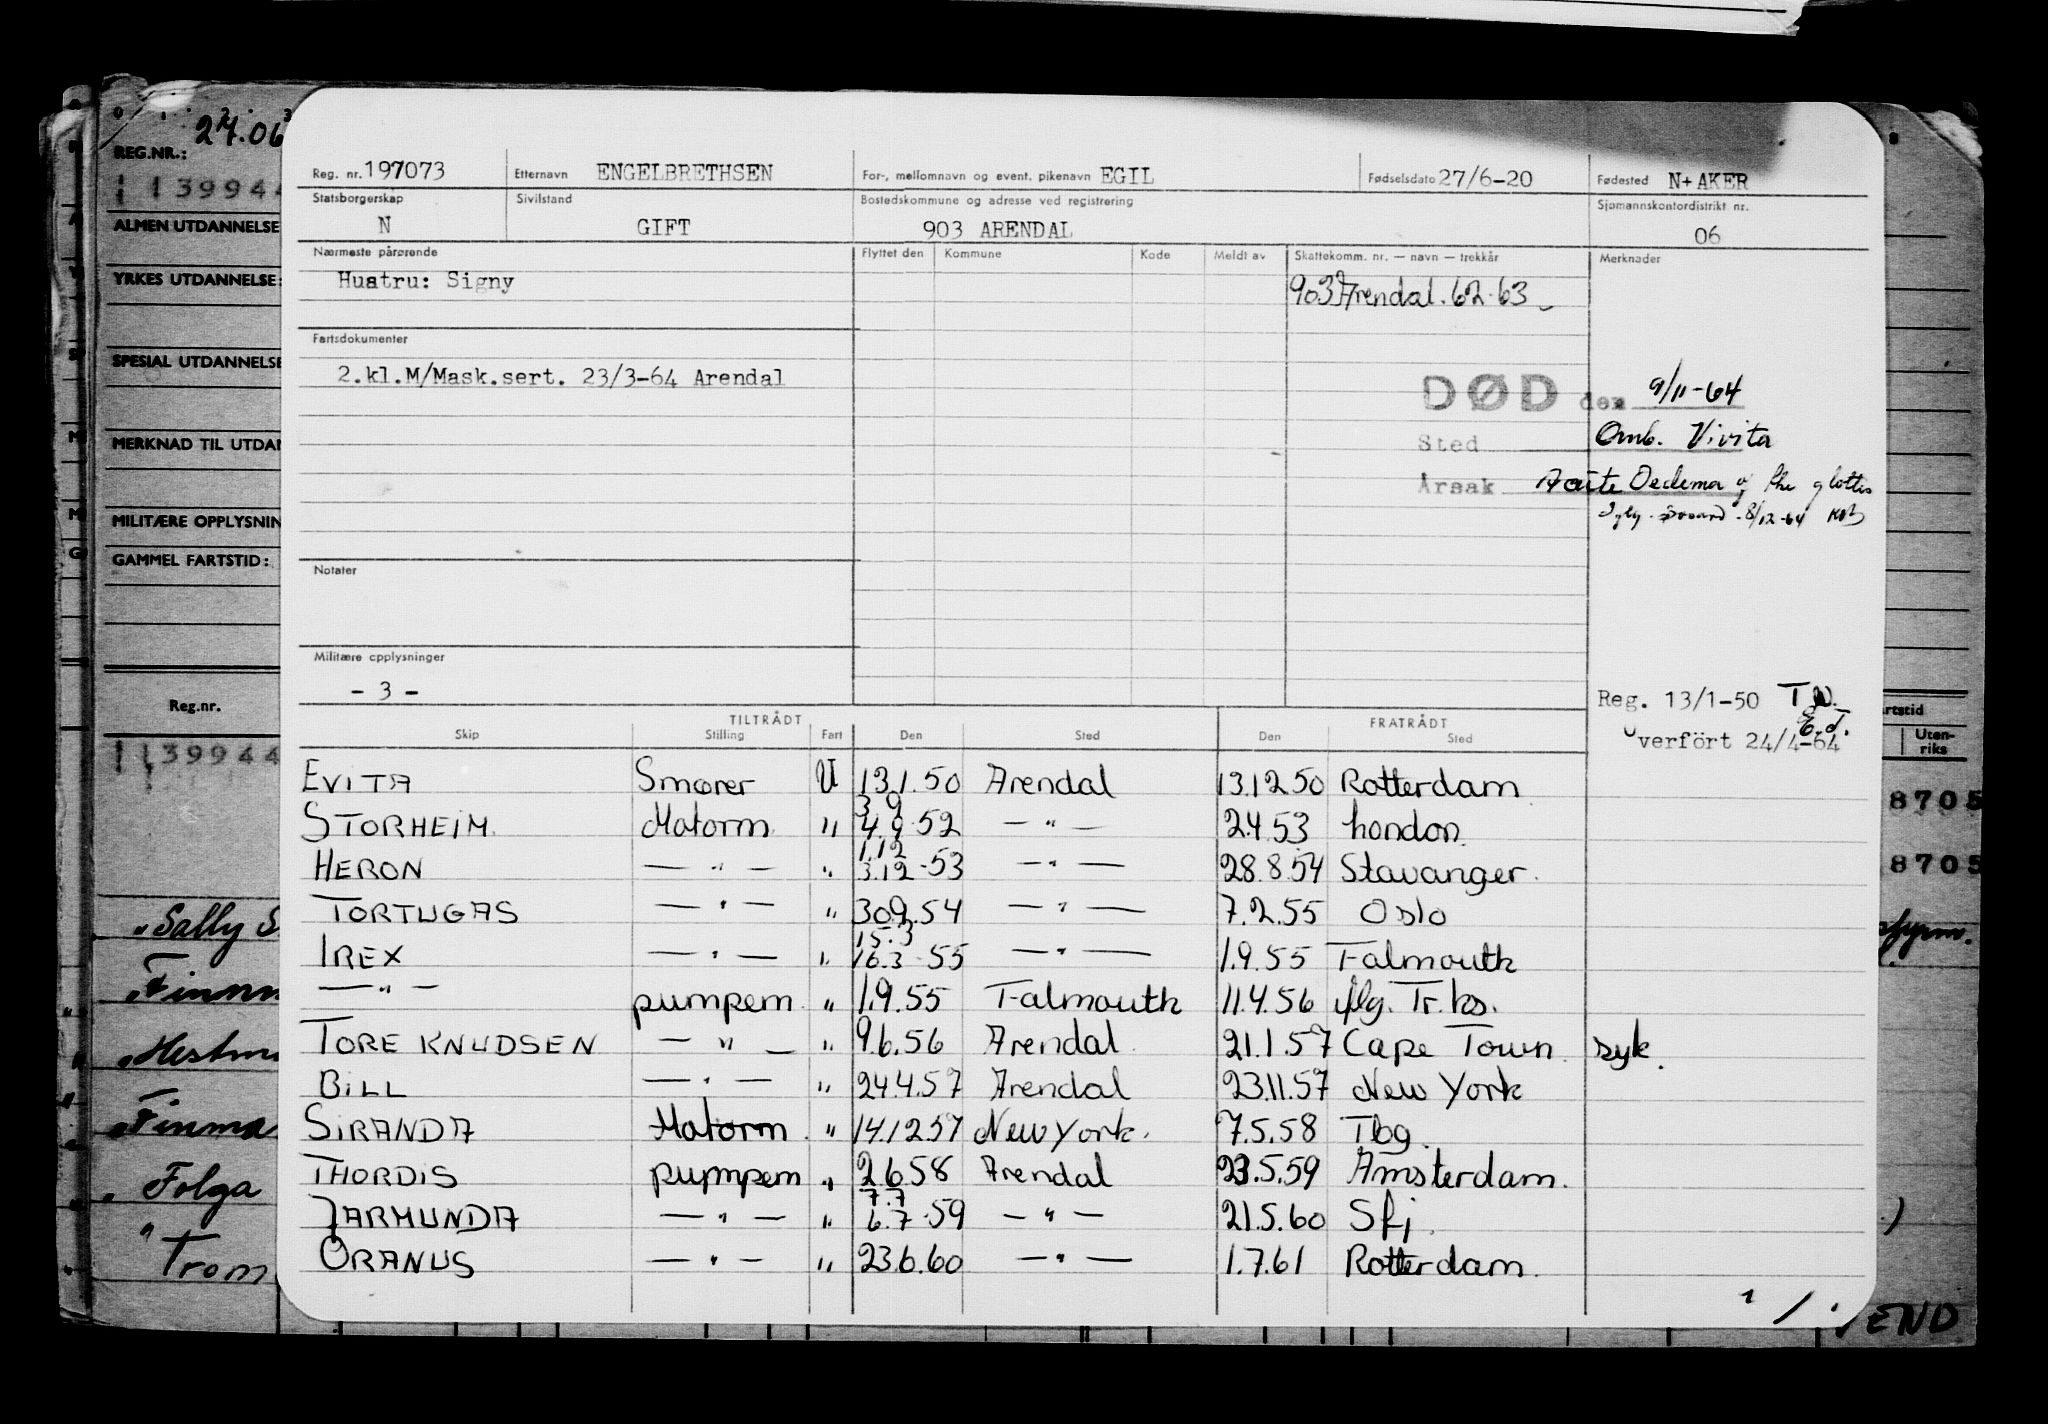 24.06
REG.NR.:
139944
ALMEN UTDANNELSE
YRKES UTDANNELSE:
SPESIAL UTDANNELSE
MERKNAD TIL UTDAN
MILITÆRE OPPLYSNIN
GAMMEL FARTSTID:
Reg.nr.
139944
"Sally S
"Finnm
"Hestm
"Finma
" Folga
" Trom
Reg. nr. 197073 Etternavn ENGELBRETHSEN For-, mellomnavn og event. pikenavn EGIL Fødselsdato 27/6-20 Fødested N+AKER
Statsborgerskap Sivilstand Bostedskommune og adresse ved registrering Sjømannskontordistrikt nr.
N GIFT 903 ARENDAL 06
Nærmeste pårørende Flyttet den Kommune Kode Meldt av Skattekomm. nr. — navn — trekkår Merknader
Hustru: Signy 903 Arendal. 62-63
Fartsdokumenter
2.kl.M/Mask.sert. 23/3-64 Arendal
DØD den 9/11-64
Sted Omb. Vivita
Årsak Acute Oedema of the glottis
8/12-64
Notater
Militære opplysninger
- 3 -
Reg. 13/1-50 T.W.
Overført 24/4-64 E.T.
TILTRÅDT FRATRÅDT
Skip Stilling Fart Den Sted Den Sted
EVITA Smører U 13.1.50 Arendal 13.12.50 Rotterdam
3 9
STORHEIM Matorm " 4.9.52 — " — 2.4.53 London
1.12
HERON — " — " 3.12.53 — " — 28.8.54 Stavanger.
TORTUGAS — " — " 30.9.54 — " — 7.2.55 Oslo
15.3
IREX — " — " 16.3.55 — " — 1.9.55 Falmouth
— " — pumpem. " 1.9.55 Falmouth 11.4.56
TORE KNUDSEN — " — " 9.6.56 Arendal 21.1.57 Cape Town syk.
BILL — " — " 24.4.57 Arendal 23.11.57 New York
SIRANDA Matorm. " 14.12.57 New York. 7.5.58 Tbg.
THORDIS pumpem " 2.6.58 Arendal 23.5.59 Amsterdam.
7.7
JARMUNDA — " — " 6.7.59 — " — 21.5.60 Sfj.
ORANUS — " — " 23.6.60 — " — 1.7.61 Rotterdam.
rtstid
Uten-
riks
8705
8705
END